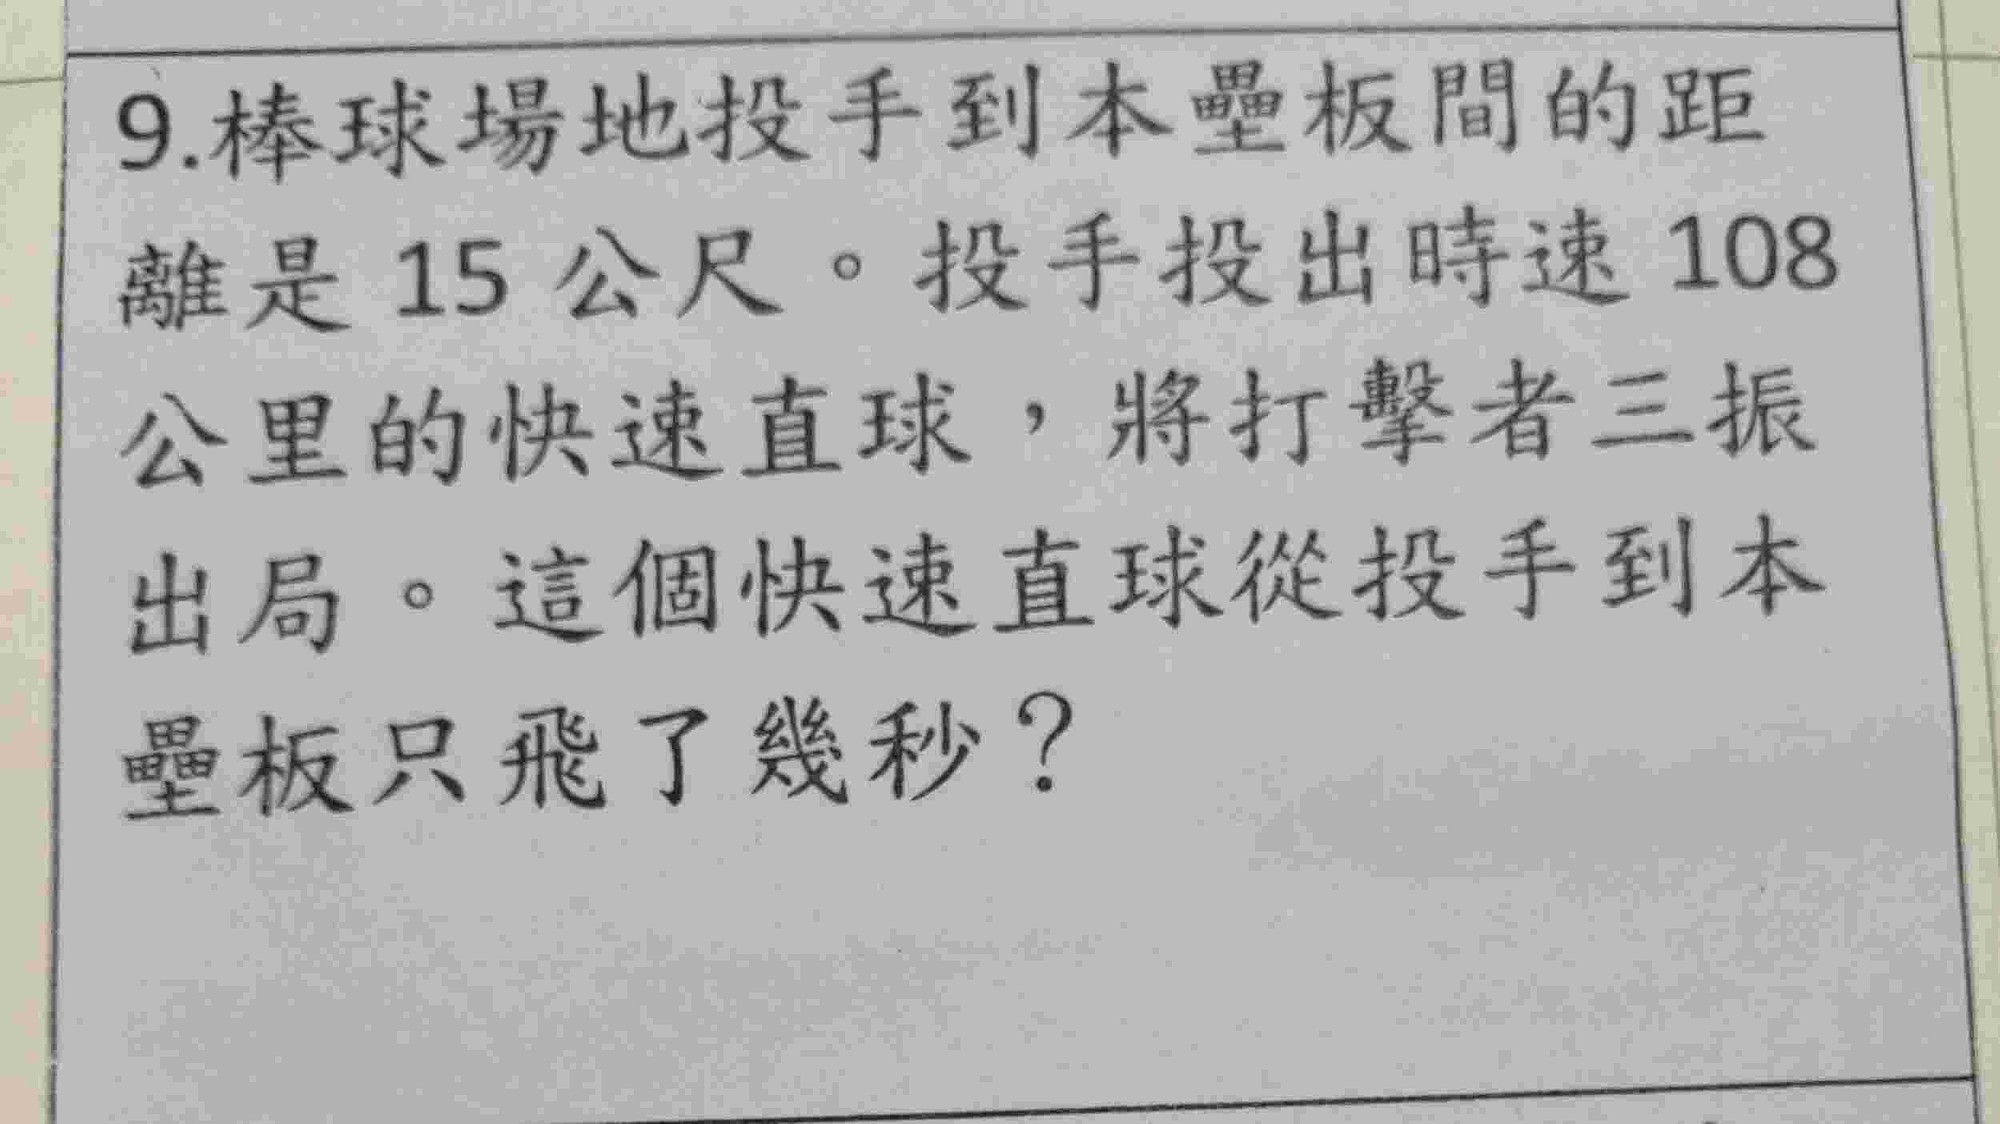 9.棒球場地投手到本壘板間的距
離是 15 公尺。投手投出時速 108
公里的快速直球，將打擊者三振
出局。這個快速直球從投手到本
壘板只飛了幾秒？